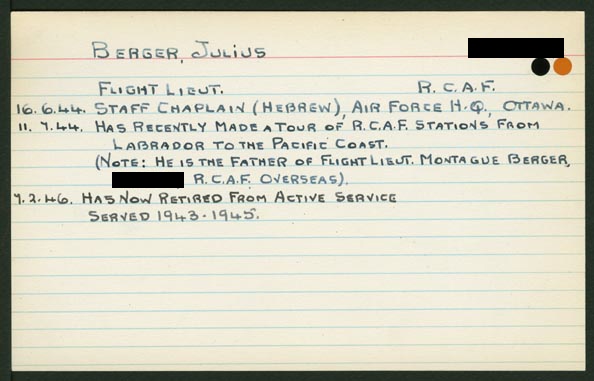 BERGER, JULIUS
FLIGHT LIEUT. R.C.A.F.
16.6.44. STAFF CHAPLAIN (HEBREW), AIR FORCE H.Q., OTTAWA.
11.7.44. HAS RECENTLY MADE A TOUR OF R.C.A.F. STATIONS FROM
LABRADOR TO THE PACIFIC COAST.
(NOTE: HE IS THE FATHER OF FLIGHT LIEUT. MONTAGUE BERGER,
R.C.A.F. OVERSEAS).
7.2.46. HAS NOW RETIRED FROM ACTIVE SERVICE
SERVED 1943-1945.